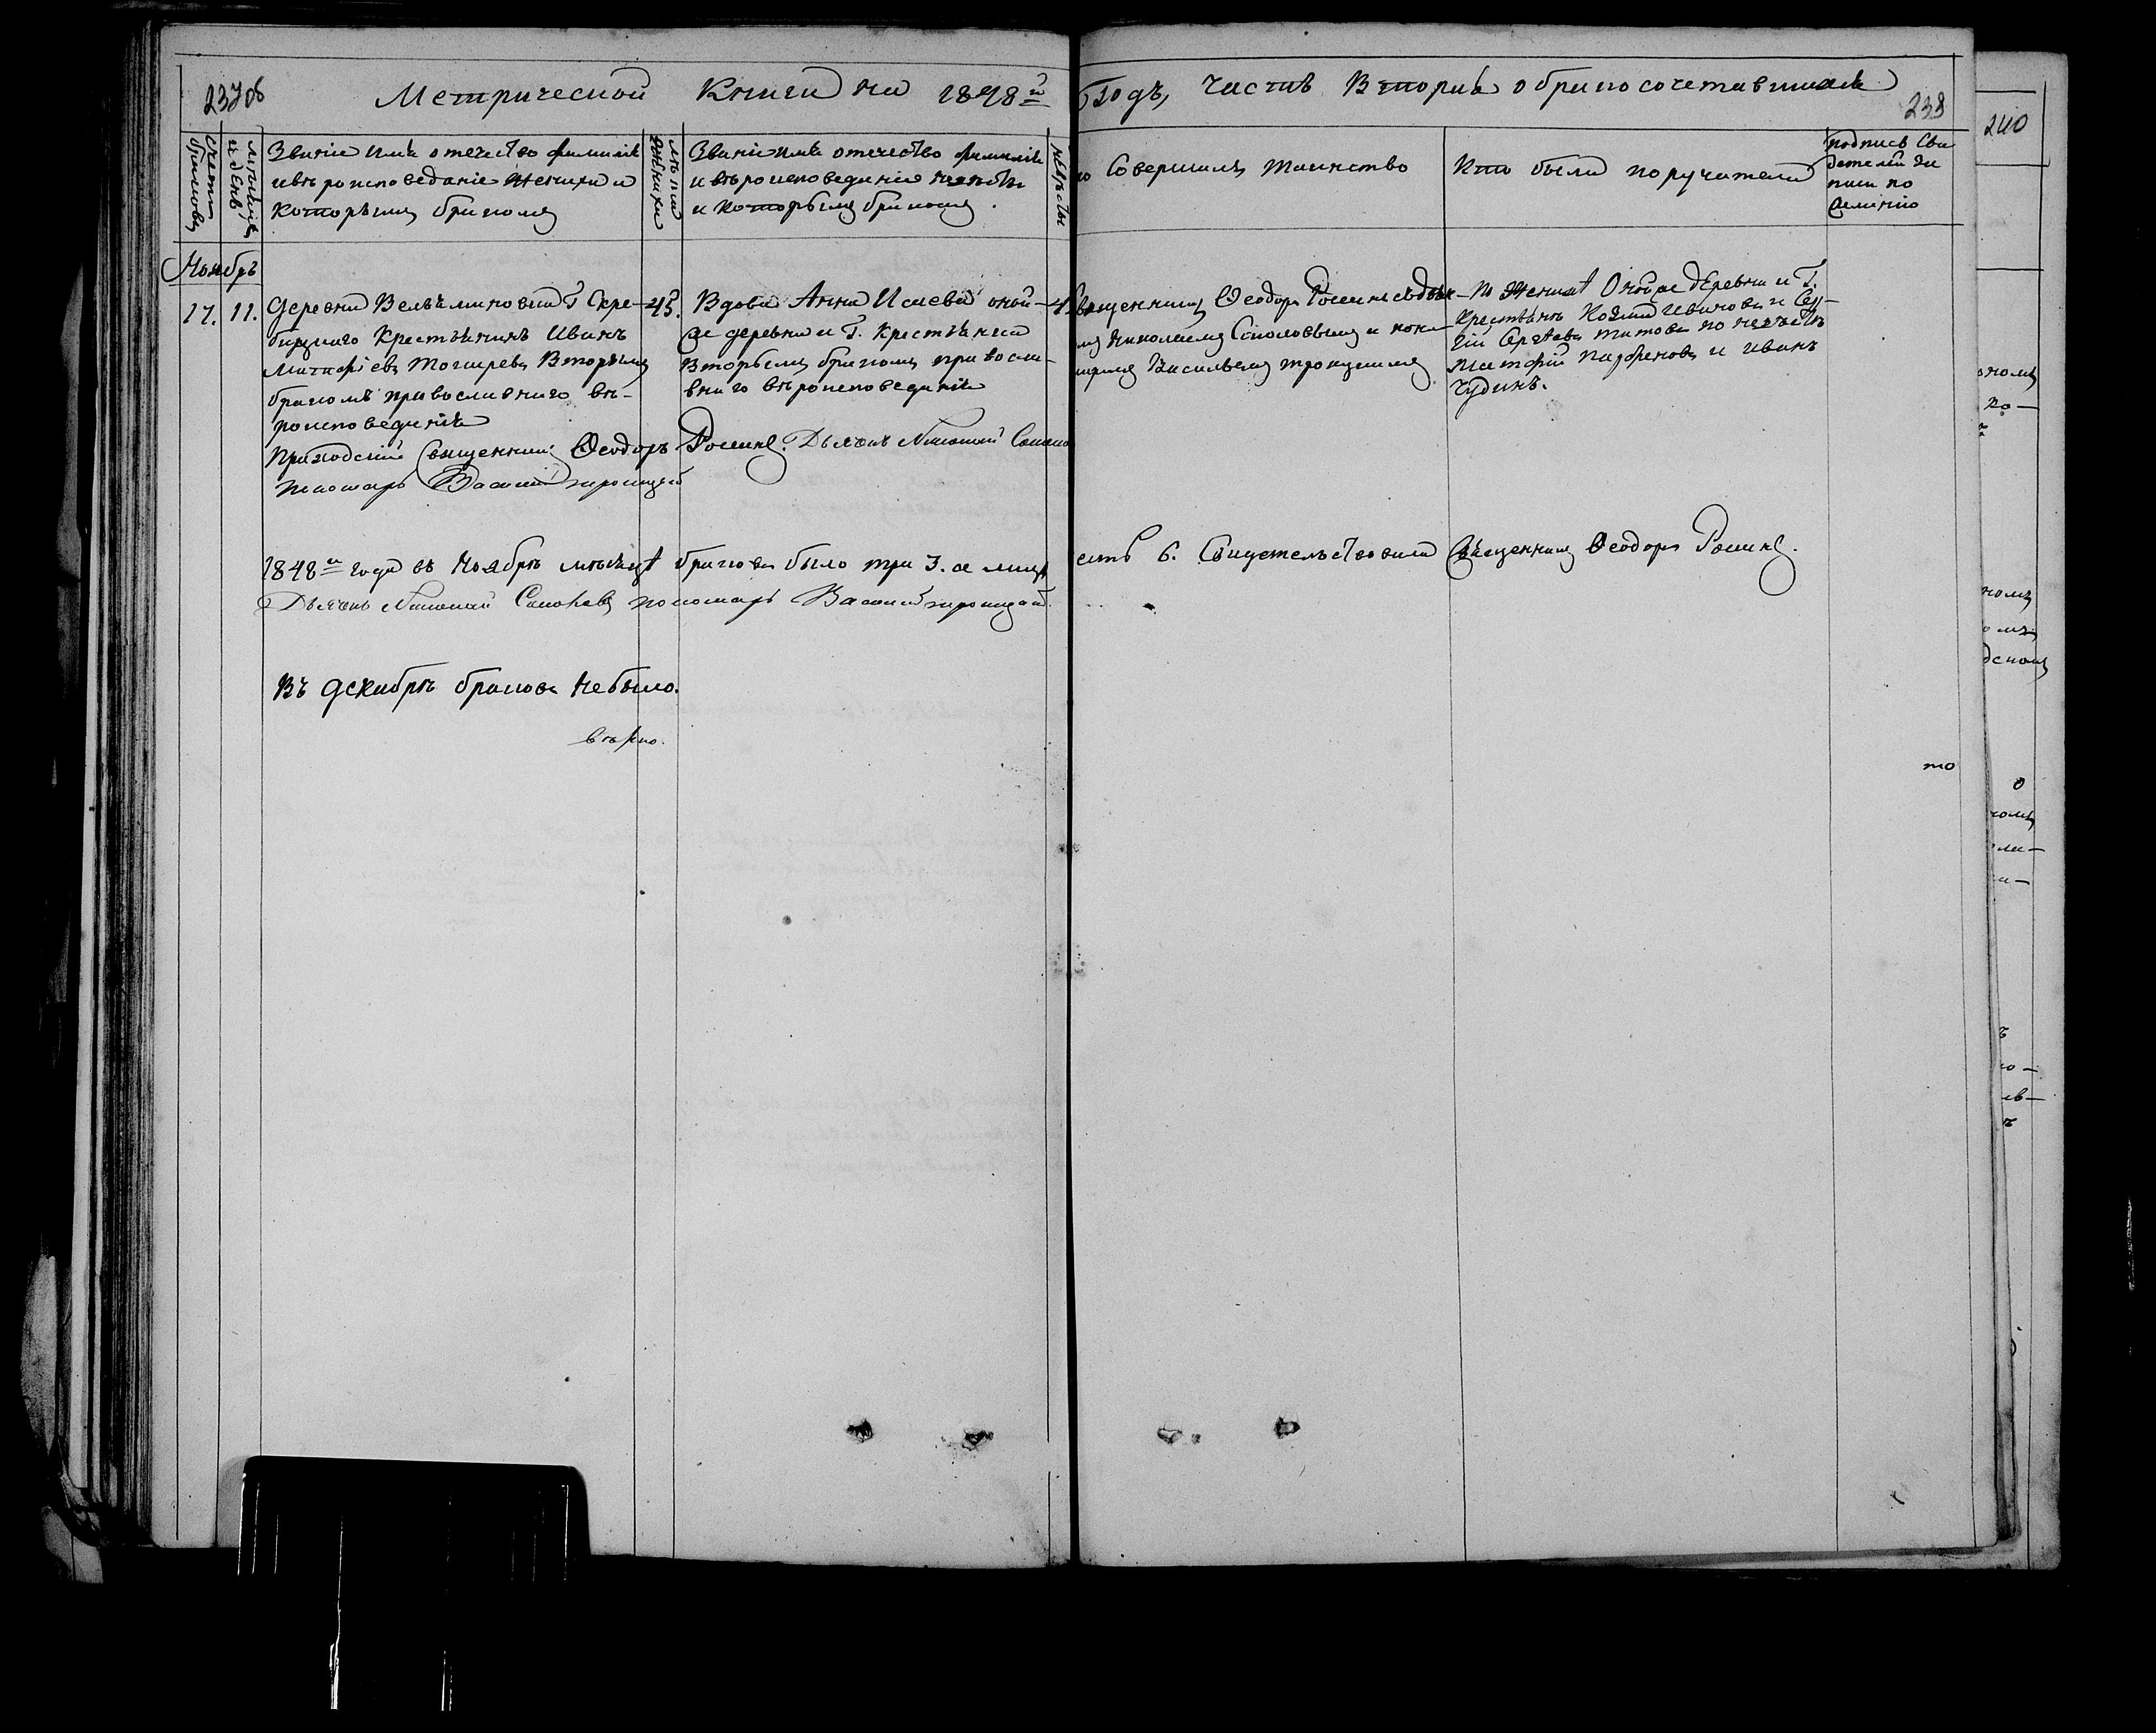 237об
Метрической Книги на 1848й Годъ, Часть Вторая о бракосочетавшихся
239
240
Счетъ браковъ
Месяцъ и день
Званіе имя отечество фамилія
и вѣроисповеданіе жениха и
которымъ бракомъ
Лѣта жениха
Званіе имя отечество фамилія
и вѣроисповеданіе невѣсты
и которымъ бракомъ
невѣсты
Совершалъ таинство
Кто были поручители
подпись Сви
детелей за
писи по
желанію
Ноябрь
17. 11.
Деревни Вельяминовки Г. Скре-
бицкаго Крестьянинъ Иванъ
Вторымъ
бракомъ православнаго вѣ-
роисповеданія
45.
Вдова Анна Исаева оной-
же деревни и Г. Крестьянка
Вторымъ бракомъ правосла-
внаго вѣроисповеданія
4
Священникъ Ѳеодоръ Росинъ съ дьяч-
мъ Николаемъ Соколовымъ и поно-
маремъ Васильемъ Троицкимъ
По женихѣ Оной же деревни и Г.
Крестьянъ Козма Ивановъ и Сер-
гій Сергѣевъ Титовъ по невѣстѣ
Парфеновъ и Иванъ
Чудинъ.
Приходскій Священникъ Ѳеодоръ Росинъ. Дьячокъ Николай Соколо
Пономарь Василий Троицкій
1848го года въ Ноябрѣ месяцѣ браковъ было три 3. а лицъ
есть 6. Свидетельствовали Священникъ Ѳеодоръ Росинъ.
Дьячокъ Николай Соколовъ пономарь Василий Троицкій.
Въ декабрѣ браковъ не было.
вѣрно.
то